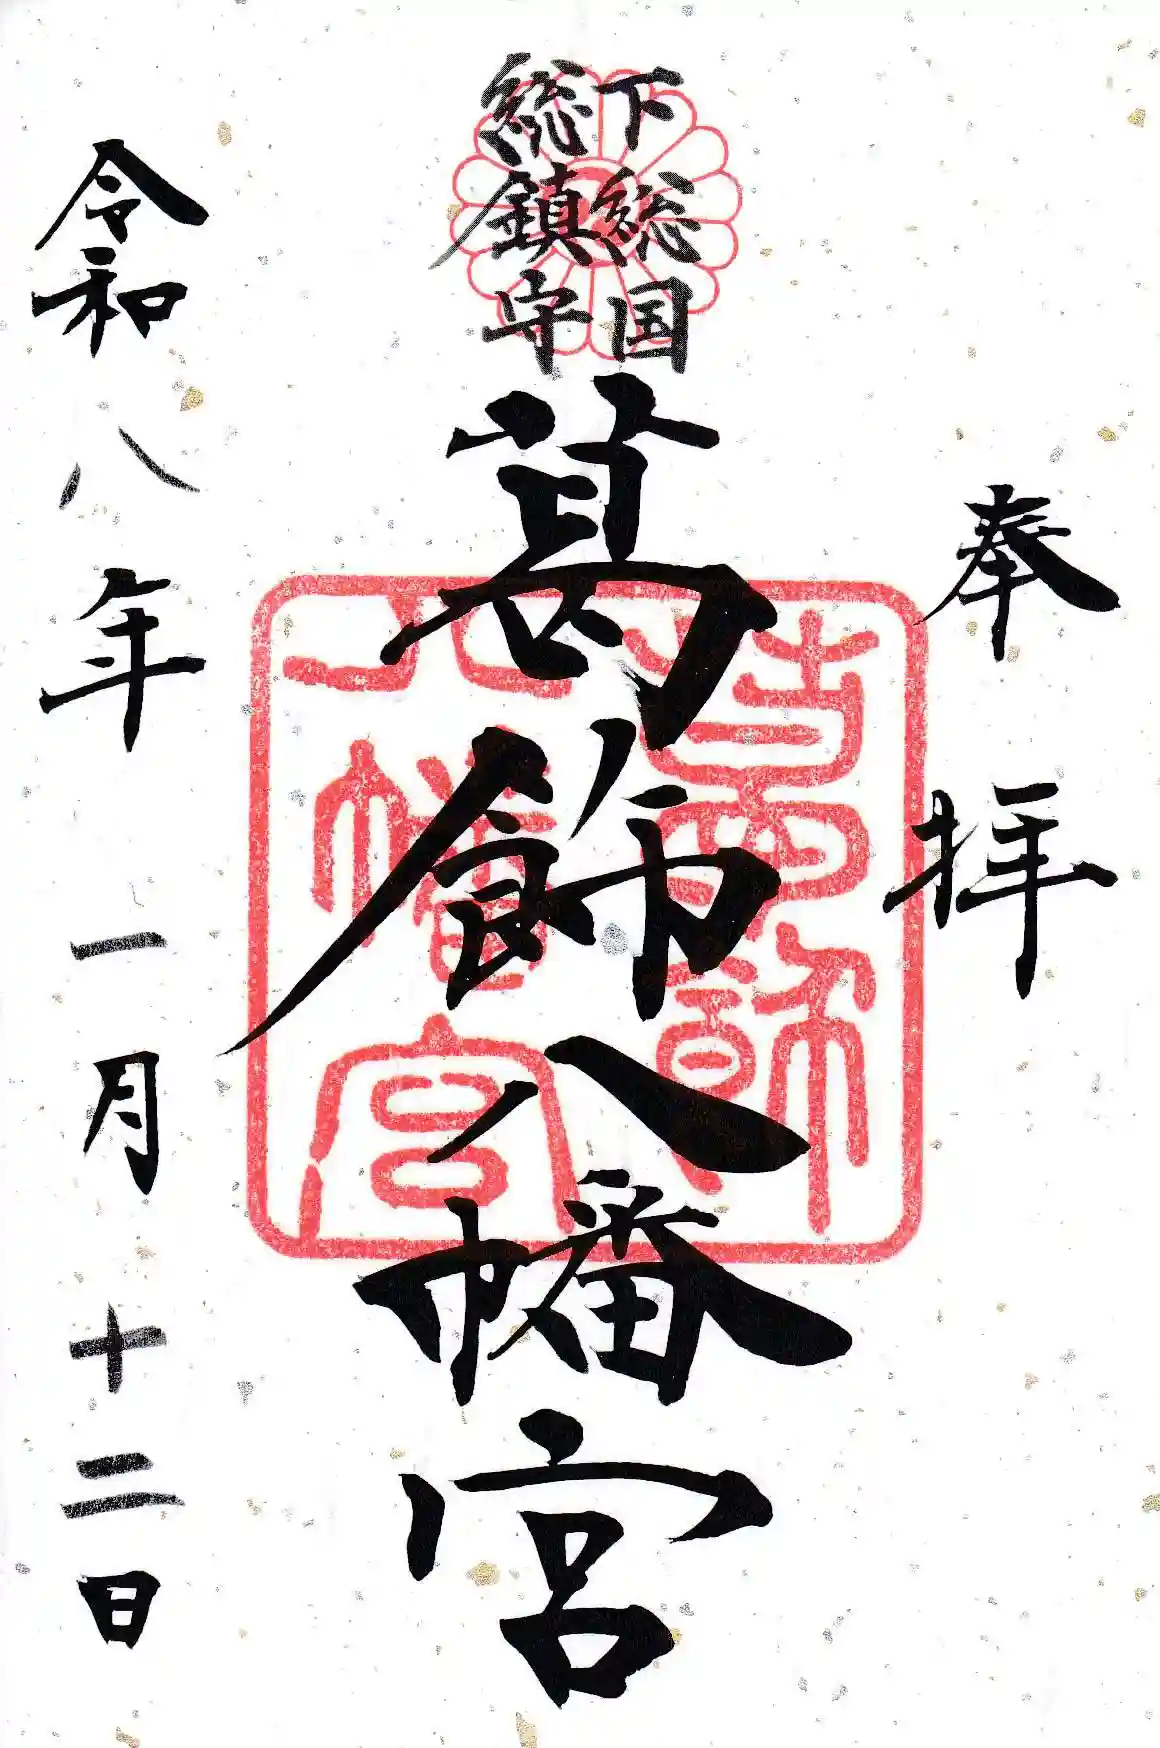 奉拝
下総国
総鎮守
葛飾八幡宮
葛飾
八幡宮
令和八年一月十二日